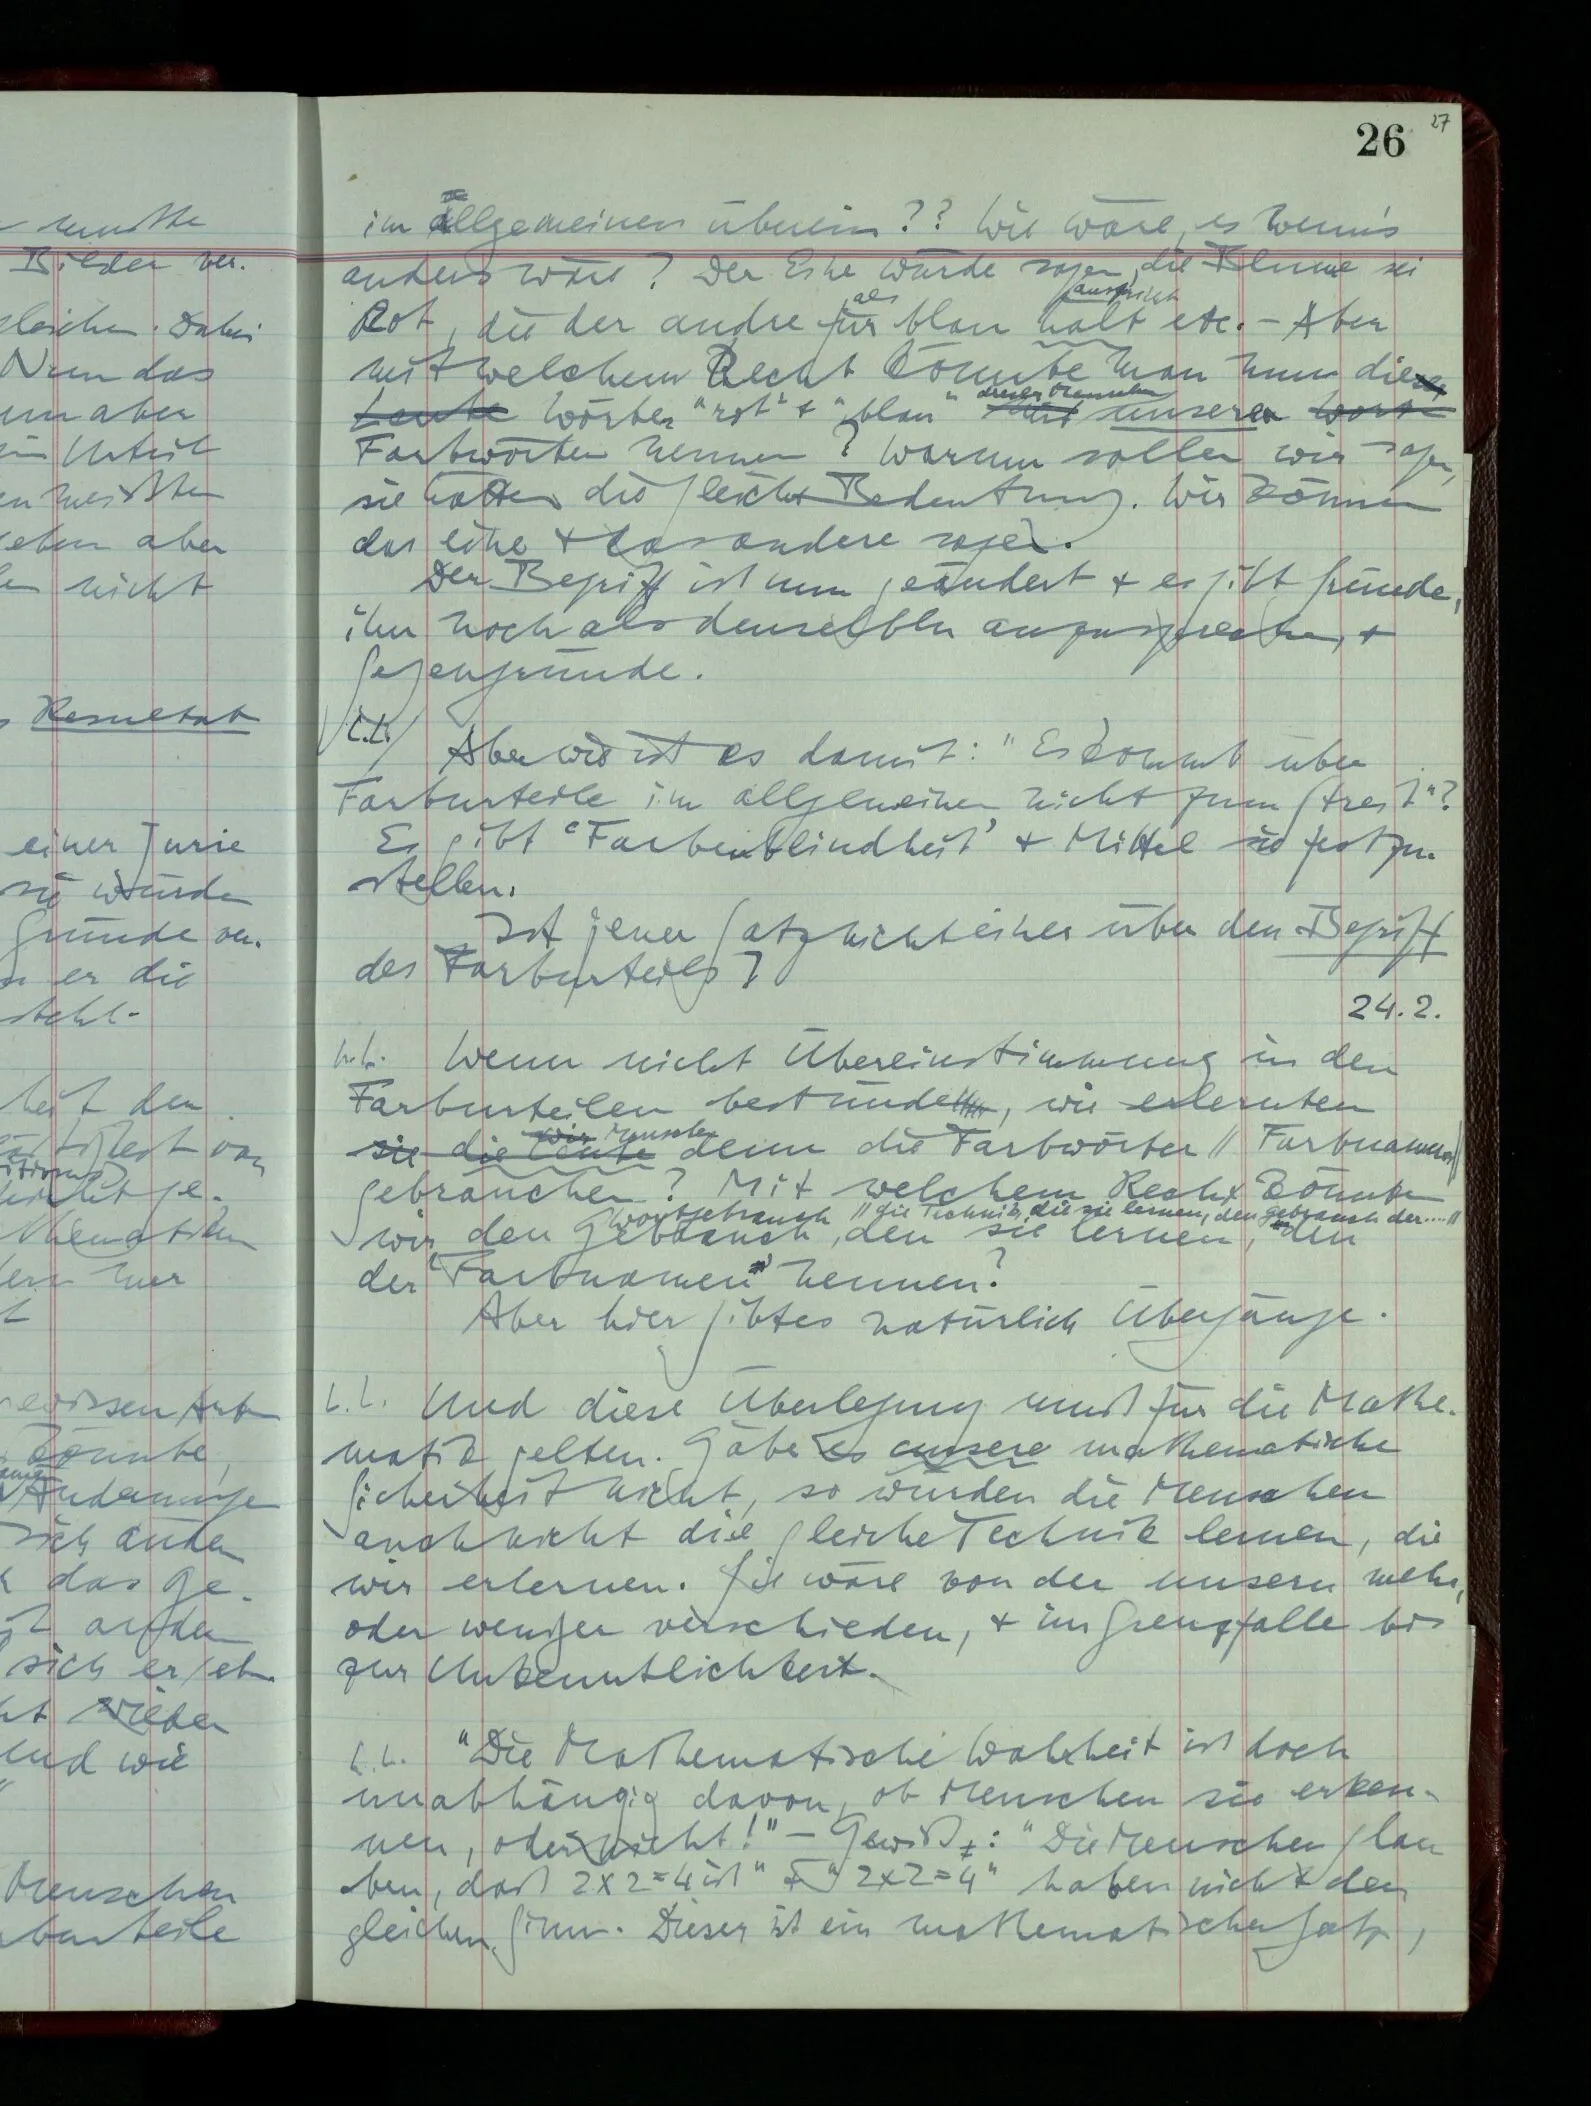 26
27
im Allgemeinen überein?? Wie wäre es wenn's
anders wäre? Der Eine würde sagen, die Blume sei
als anspricht
Rot, die der andre für blau hält etc. – Aber
mit welchem Recht könnte man nun diese
dieser Menschen
Leute Wörter "rot" & "blau" mit unseren Wort
Farbwörter nennen? Warum sollen wir sagen,
sie hätten die gleiche Bedeutung. Wir können
das eine & das andere sagen.
Der Begriff ist nun geändert & es gibt Gründe,
ihn noch als denselben anzusprechen, &
Gegengründe.
Aber wie ist es damit: "Es kommt über
Farburteile im allgemeinen nicht zum Streit"?
Es gibt 'Farbenblindheit' & Mittel sie festzu-
stellen.
Ist jener Satz nicht einer über den Begriff
des Farburteils?
24.2.
Wenn nicht Übereinstimmung in den
Farburteilen bestünde, wie erlernten
wir Menschen
sie die Leute denn die Farbwörter // Farbnamen //
gebrauchen? Mit welchem Recht könnten
Wortgebrauch // die Technik, die sie lernen, den Gebrauch der .... //
wir den Gebrauch, den sie lernen, den
der 'Farbnamen' nennen?
Aber hier gibt es natürlich Übergänge.
Und diese Überlegung muß für die Mathe-
matik gelten. Gäbe es unsere mathematische
Sicherheit nicht, so würden die Menschen
auch nicht die gleiche Technik lernen, die
wir erlernen. Sie wäre von der unsern mehr,
oder weniger verschieden, & im Grenzfalle bis
zur Unkenntlichkeit.
"Die Mathematische Wahrheit ist doch
unabhängig davon, ob Menschen sie erken-
nen, oder nicht!" – Gewiß: "Die Menschen glau
ben, daß 2x2=4 ist" & "2x2=4" haben nicht den
gleichen Sinn. Dieser ist ein mathematischer Satz,
mußte
Bilder ver-
gleichen. Dabei
Nun das
nun aber
ein Urteil
aber
nicht
Resultat
einer Jurie
sie würden
Gründe ver-
er die
steht.
den
ge-
Mathematiker
nur
gewissen Art
könnte,
Änderunge
sich ändern
das Ge-
auf der
sich ergeb
wieder
und wie
Menschen
Farburteile